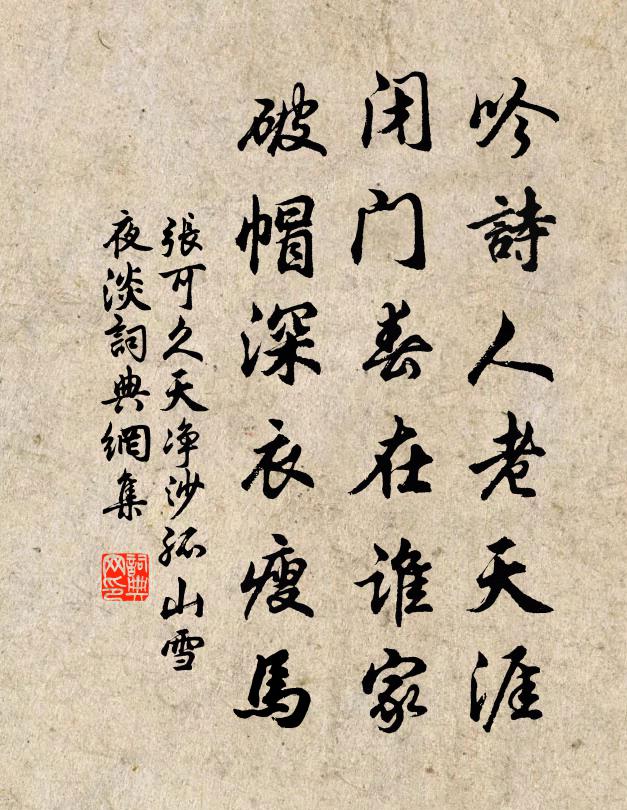 吟詩人老天涯
闭门春在谁家
破帽深衣瘦馬
張可久天净沙孤山雪
夜淡詞典網集
詞典
网印